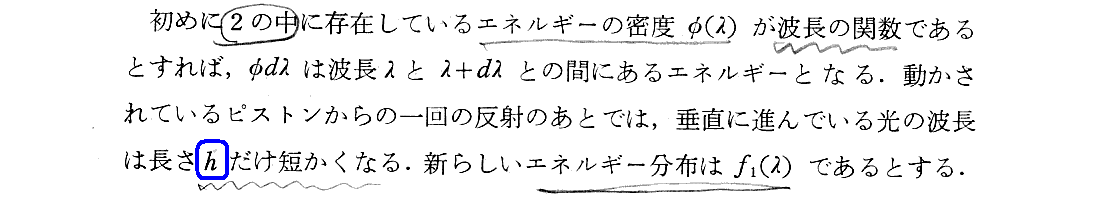 初めに2の中に存在しているエネルギーの密度 ϕ(λ) が波長の関数である
とすれば，ϕdλ は波長 λ と λ+dλ との間にあるエネルギーとなる．動かさ
れているピストンからの一回の反射のあとでは，垂直に進んでいる光の波長
は長さ h だけ短かくなる．新らしいエネルギー分布は f₁(λ) であるとする．